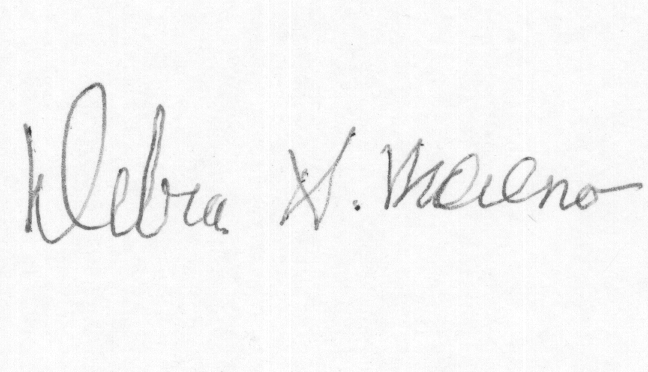 Debra S. Moreno